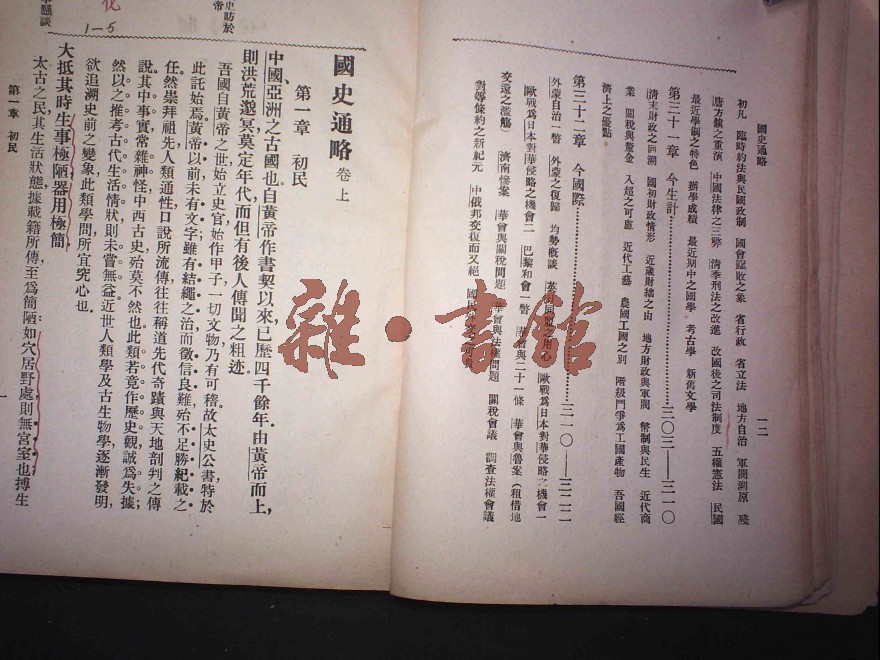 國史通略
一二
初凡　臨時約法與民國政制　國會誕敗之象　省行政　省立法　地方自治　軍閥溯原　殘
唐方鎮之重演　中國法律之三弊　清季刑法之改進　改國後之司法制度　五權憲法　民國
最近學制之特色　辦學成績　最近期中之國學　考古學　新舊文學
第三十一章　今生計……三〇三——三一〇
清末財政之回溯　國初財政情形　近歲財絀之由　地方財政與軍閥　幣制與民生　近代商
業　關稅與釐金　入超之可慮　近代工藝　農國工國之別　階級鬥爭爲工國產物　吾國經
濟上之優點
第三十二章　今國際……三一〇——三二二
外蒙自治一瞥　外蒙之復歸　均勢概談　英日同盟之用心　歐戰爲日本對華侵略之機會一
歐戰爲日本對華侵略之機會二　巴黎和會一瞥　華會與二十一條　華會與魯案（租借地
交還之濫觴）　濟南慘案　華會與關稅問題　華會與法權問題　關稅會議　調查法權會議
對等條約之新紀元　中俄邦交復而又絕
國史通略 卷上
第一章　初民
中國、亞洲之古國也。自黃帝作書契以來、已歷四千餘年。由黃帝而上、
則洪荒邈冥、莫定年代、而但有後人傳聞之粗迹。
吾國自黃帝之世、始立史官、始作甲子、一切文物、乃有可稽。故太史公書、特於
此託始焉。黃帝以前、未有文字、雖有結繩之治、而徵信良難、殆不足勝紀載之
任。然崇拜祖先、人類通性、口說所流傳、往往稱道先代奇蹟、與天地剖判之傳
說、其中事實、常雜神怪、中西古史、殆莫不然也。此類若竟作歷史觀、誠爲失據、
然以之推考古代生活情狀、則未嘗無益。近世人類學及古生物學、逐漸發明、
欲追溯史前之變象、此類學問、所宜究心也。
大抵其時生事極陋、器用極簡
太古之民、其生活狀態、據載籍所傳、至爲簡陋。如穴居野處、則無宮室也；搏生
第一章　初民
一
史昉於
帝
1-5
雜·書館